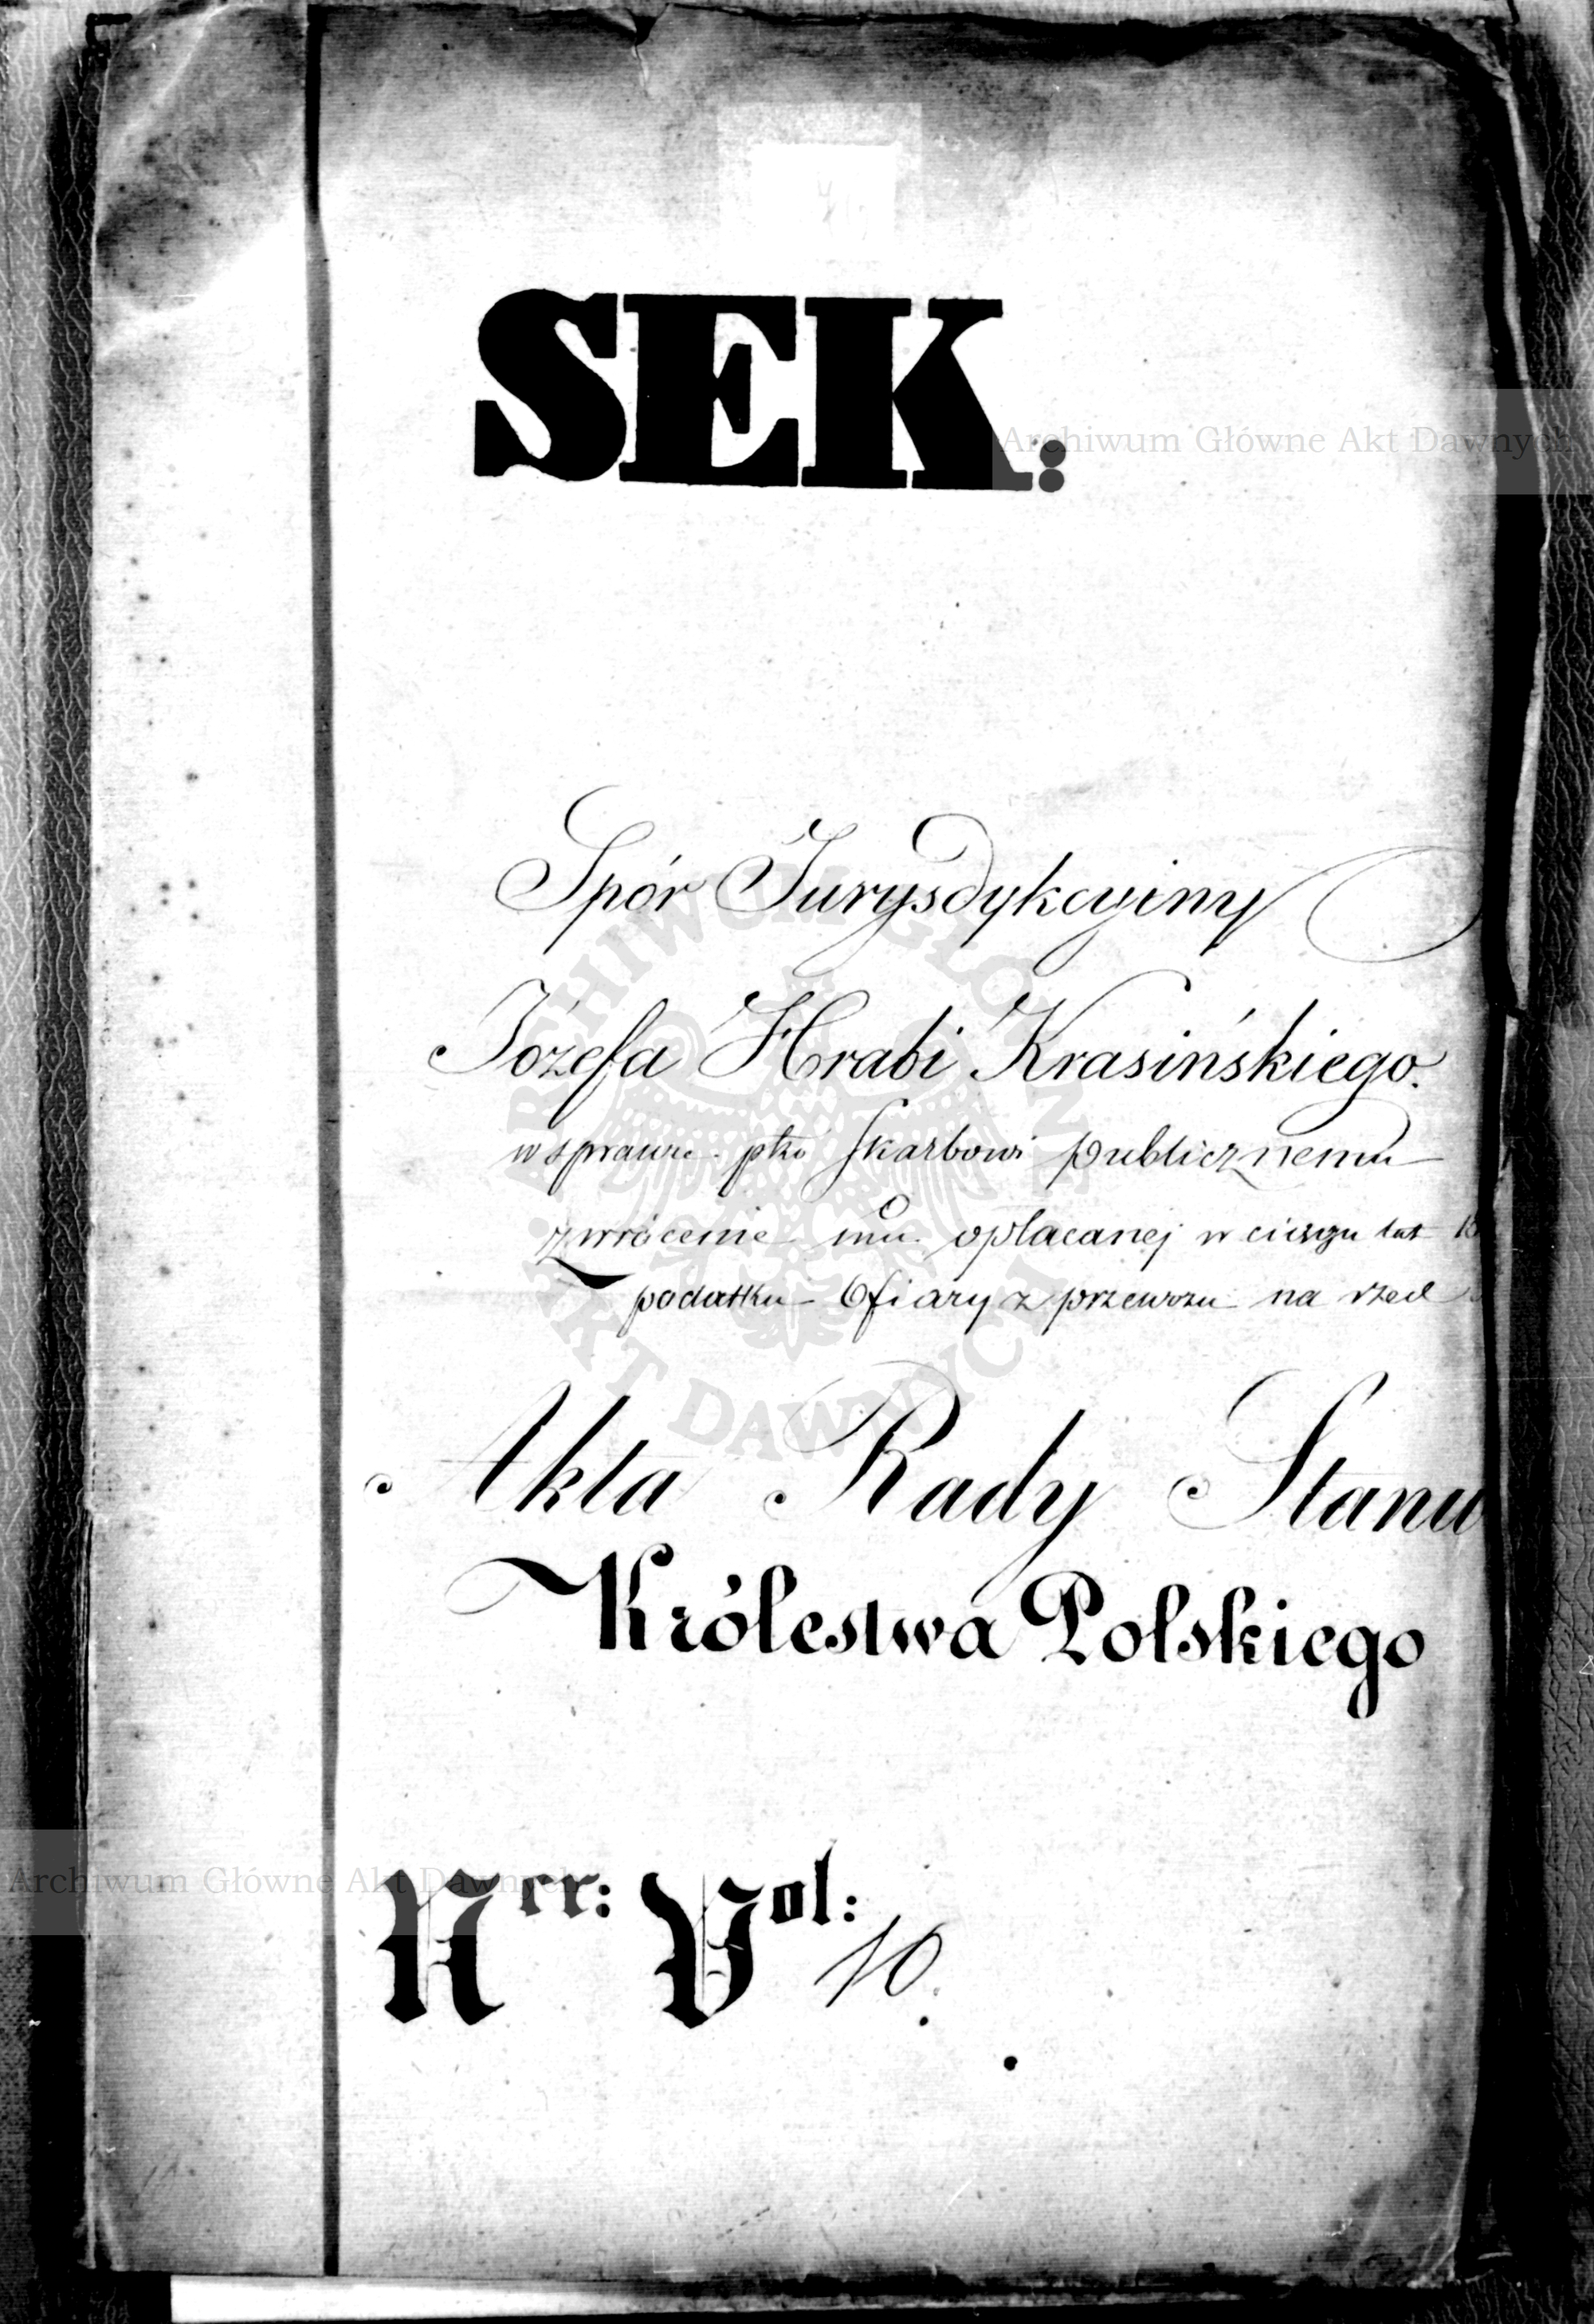 SEK:
Archiwum Główne Akt Dawnych
Spór Jurysdykcyiny
Józefa Hrabi Krasińskiego.
w sprawie pko Skarbowi publicznemu
zwrócenie mu opłacanej w ciągu lat
podatku Ofiary z przewozu na rzece
Akta Rady Stanu
Królestwa Polskiego
Archiwum Główne Akt Dawnych
Nrr: Vol: 10.